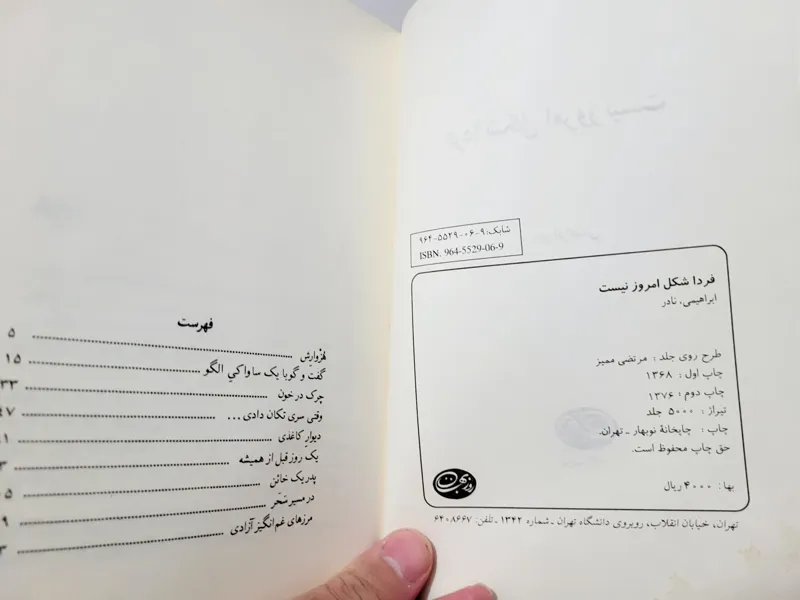 شابک: ۹-۰۶-۵۵۲۹-۹۶۴
ISBN. 964-5529-06-9
فردا شکل امروز نیست
ابراهیمی، نادر
طرح روی جلد: مرتضی ممیز
چاپ اول: ۱۳۶۸
چاپ دوم: ۱۳۷۶
تیراژ: ۵۰۰۰ جلد
چاپ: چاپخانهٔ نوبهار ـ تهران.
حق چاپ محفوظ است.
بها: ۴۰۰۰ ریال
روزبهان
تهران، خیابان انقلاب، روبروی دانشگاه تهران ـ شماره ۱۳۴۲ ـ تلفن: ۶۴۰۸۶۶۷
فهرست
هُزوارِش ۵
گفت و گو با یک ساواکیِ الگو ۱۵
چرک در خون ۳۳
وقتی سری تکان دادی...
دیوار کاغذی
یک روز قبل از همیشه
پدر یک خائن
در مسیر سَحَر
مرزهای غم‌انگیز آزادی